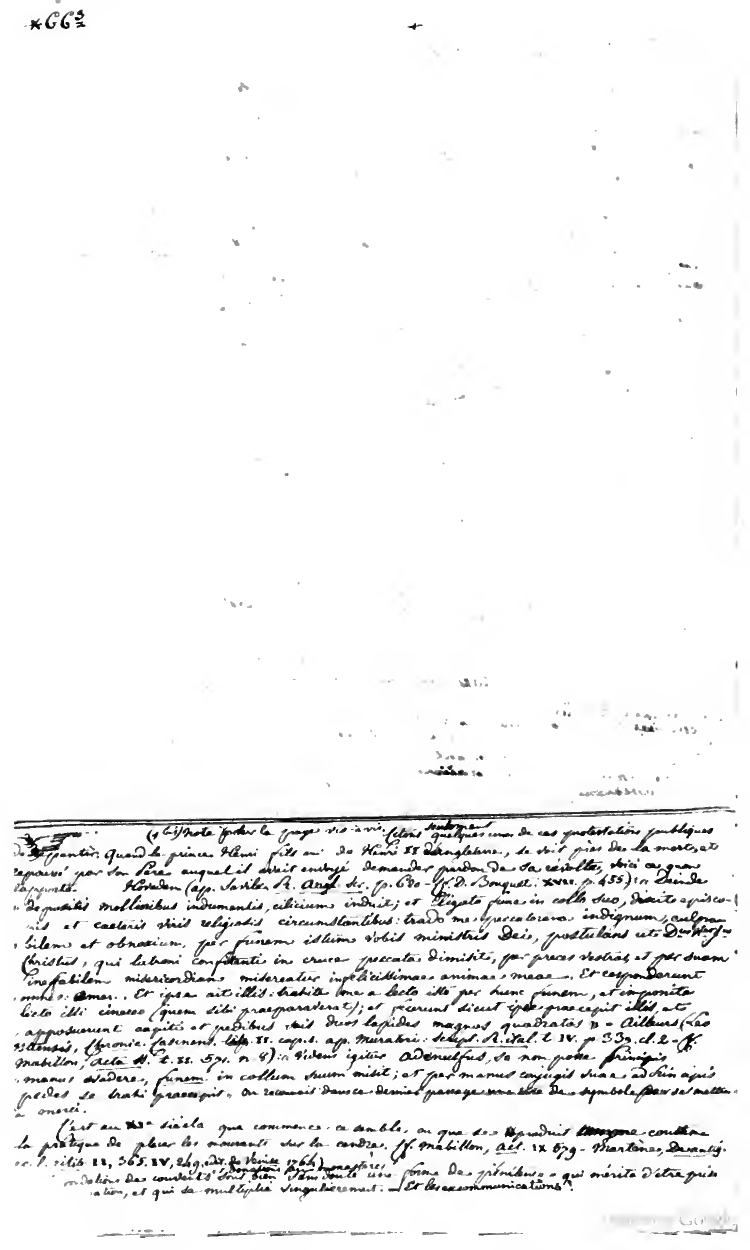 *66³
(1 bis) Note pour la page vis à vis. Citons seulement quelques unes de ces protestations publiques
de . Quand le prince Henri fils de Henri II d'Angleterre, se voit près de la mort, et
repoussé par son Père auquel il avait envoyé demander pardon de sa révolte, voici ce que
rapporte Hoveden (ap. Savile. R. Angl. Scr. p. 620 - Cf. D. Bouquet. XVII. p. 455) : « Deinde
» depositis mollioribus indumentis, cilicium induit; et ligato fune in collo suo, dixit episco-
pis et caeteris viris religiosis circumstantibus: trado me peccatorem indignum, culpa-
bilem et obnoxium, per funem istum vobis ministris Dei, postulans ut Dnus
Christus, qui latroni confitenti in cruce peccata dimisit, per preces vestras et per suam
ineffabilem misericordiam misereatur infelicissimae animae meae. Et responderunt
omnes: amen. Et ipse ait illis: trahite me a lecto isto per hunc funem, et imponite
lecto illi cinereo (quem sibi praeparaverat); et fecerunt sicut ipse praecepit illis, et
apposuerunt capiti et pedibus suis duos lapides magnos quadratos » - Ailleurs (Leo
Chronic. Casinens. lib. II. cap. ap. Muratori: script. R. ital. t. IV. p. 339. cl. 2 - Cf.
Mabillon, Acta t. II. 571. n. 8) : « Videns igitur Adenulfus, se non posse principis
manus evadere, funem in collum suum misit; et per manus conjugis suae ad principis
pedes se trahi praecepit » On reconnait dans ce dernier passage une de symbole pour se mettre
à merci.
C'est au XIe siècle que commence ce semble, ou que se produit comme coutume
la pratique de placer les mourants sur la cendre. (Cf. Mabillon, act. IX 679 - Martène, De antiq.
ritib. II, 365. IV, 249. edit. de Venise 1764)
fondations de couvents, donations aux monastères sont bien sans doute une forme de qui mérite d'être prise
, et qui se multiplie singulièrement. - Et les excommunications?
Google